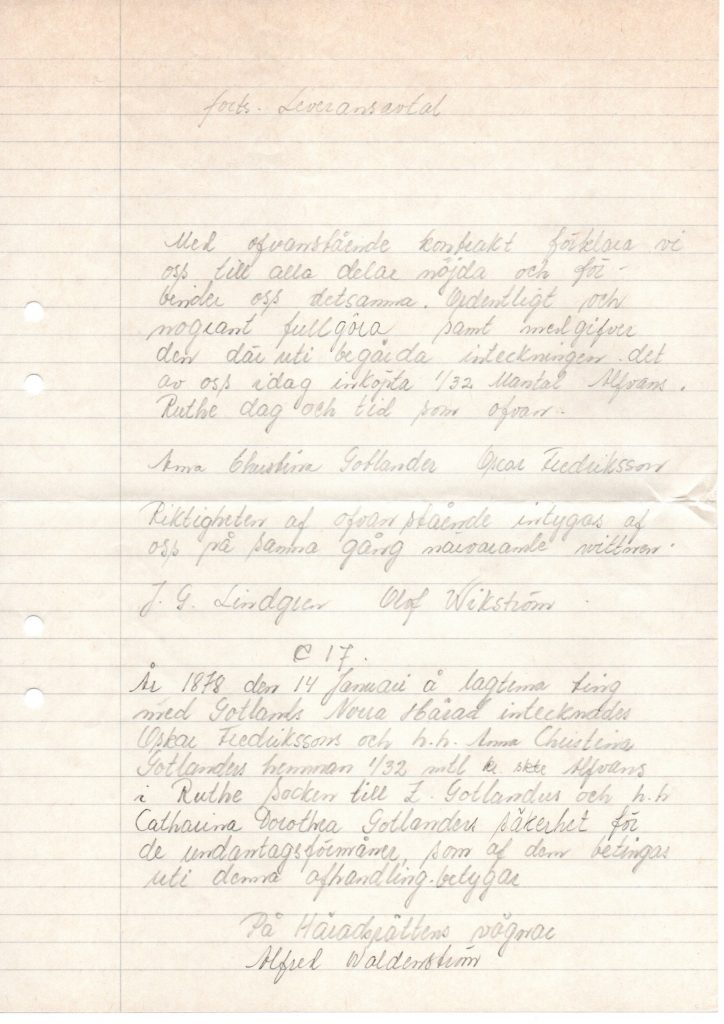 forts. Leveransavtal
Med ofvanstående kontrakt förklara vi
oss till alla delar nöjda och för-
binder oss detsamma. Ordentligt och
nogrant fullgöra samt medgifver
den där uti begärda inteckningen det
av oss idag inköpta 1/32 Mantal Alfvans.
Ruthe dag och tid som ofvan.
Anna Christina Gotlander Oskar Fredriksson
Riktigheten af ofvanstående intygas af
oss på samma gång närvarande wittnen.
J. G. Lindgren Olof Wikström
C 17.
År 1878 den 14 Januari å lagtima ting
med Gotlands Norra Härad intecknades
Oskar Fredrikssons och h.h. Anna Christina
Gotlanders hemman 1/32 mtl Alfvans
i Ruthe socken till L. Gotlanders och h.h
Catharina Dorothea Gotlanders säkerhet för
de undantagsförmåner, som af dem betingas
uti denna afhandling. betygar
På Häradsrättens vägnar
Alfred Waldenström